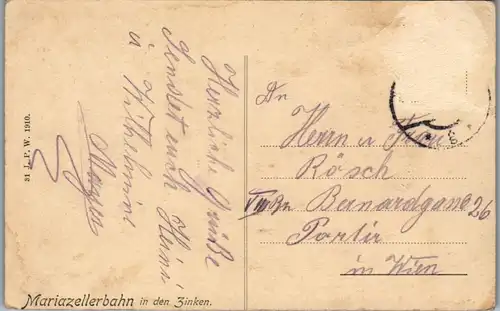 Herzliche Grüße
Sendet euch Heini
u Wilhelmine
31 J. P. W. 1910.
Mariazellerbahn in den Zinken.
An
Herrn u Frau
Rösch
VII Bz Bernardgasse 26
Portir
in Wien